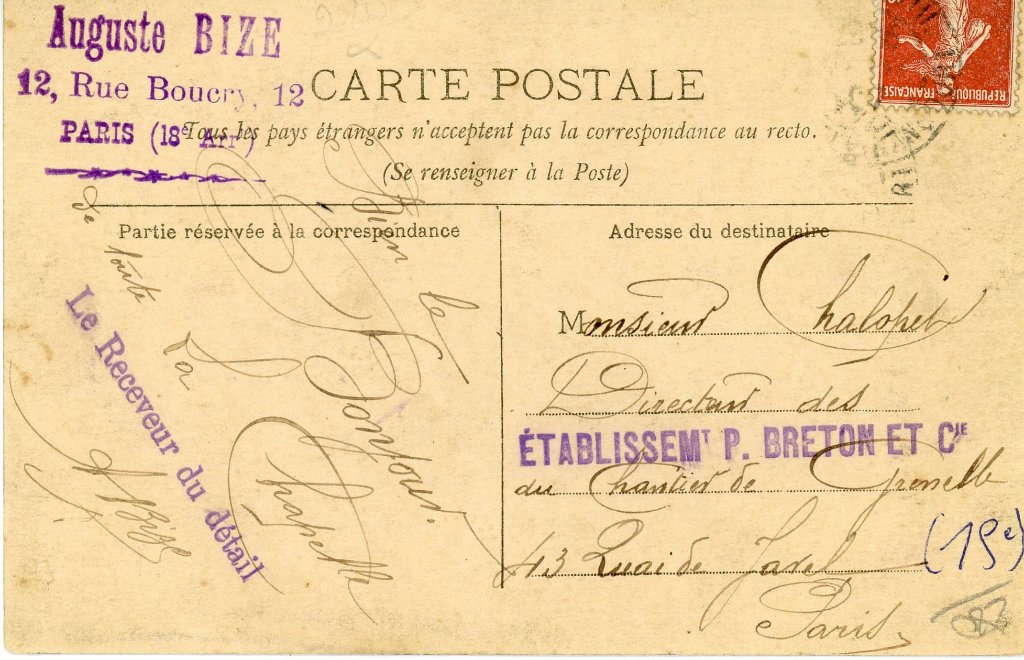 Auguste BIZE
12, Rue Boucry, 12
PARIS (18e Arrt)
CARTE POSTALE
Tous les pays étrangers n'acceptent pas la correspondance au recto.
(Se renseigner à la Poste)
RÉPUBLIQUE FRANÇAISE
Partie réservée à la correspondance
Bien le Bonjour
de toute La Chapelle
ABize
Le Receveur du détail
Adresse du destinataire
Monsieur Chalopet
Directeur des
ÉTABLISSEMT P. BRETON ET CIE
du Chantier de Grenelle
43 Quai de Javel
(15e)
Paris